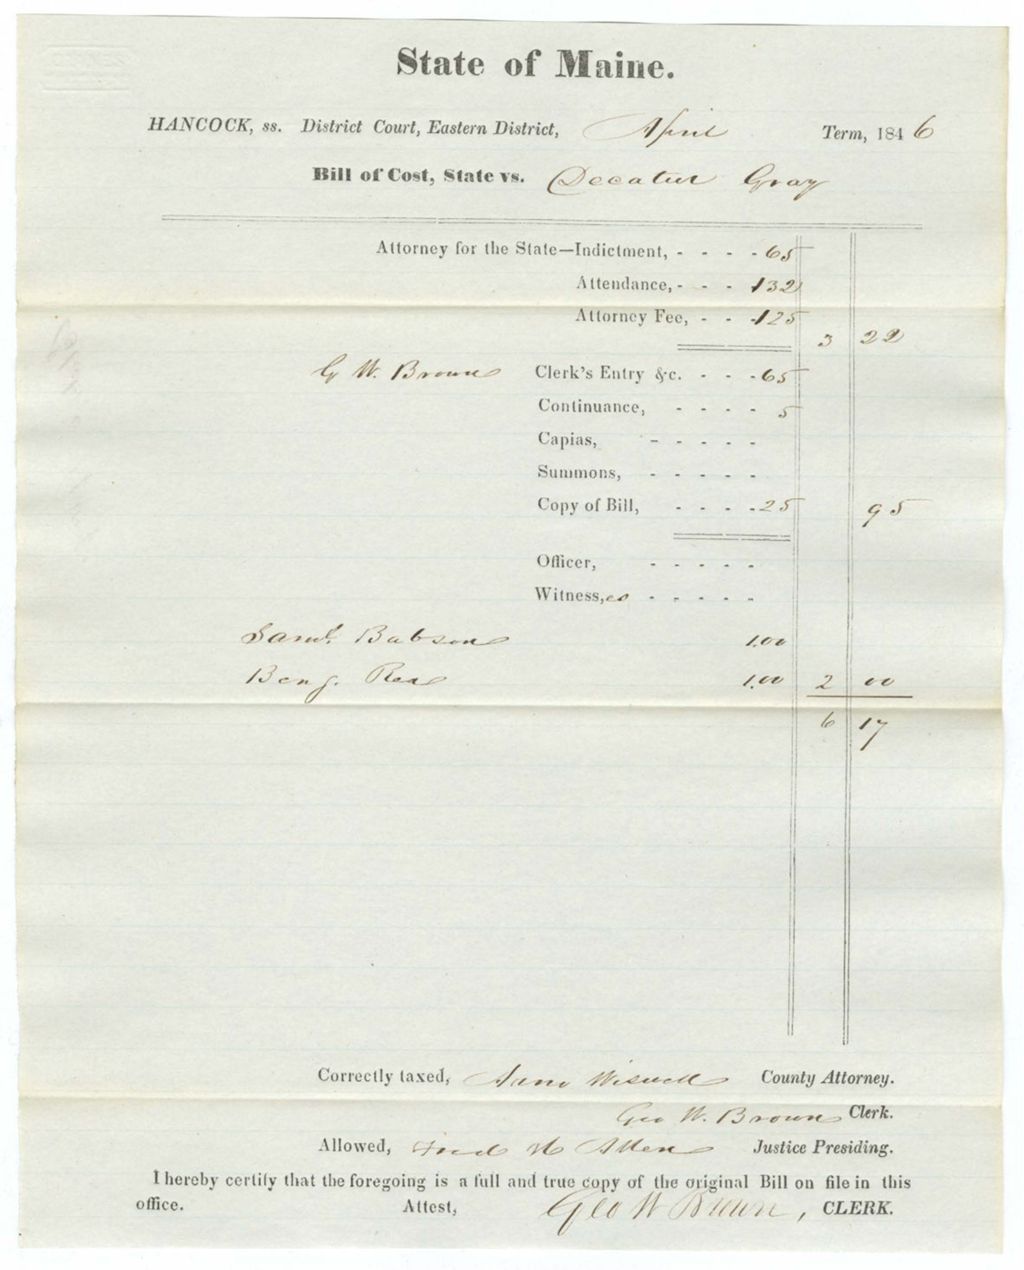 State of Maine.
HANCOCK, ss. District Court, Eastern District, April Term, 1846
Bill of Cost, State vs. Decatur Gray
Attorney for the State—Indictment, - - - - 65
Attendance, - - - 132
Attorney Fee, - - - 125
3 22
G W. Brown Clerk's Entry &c. - - - 65
Continuance, - - - - 5
Capias, - - - - -
Summons, - - - - -
Copy of Bill, - - - - 25 95
Officer, - - - - -
Witness,es - - - - -
Saml. Babson 1.00
Benj. Rea 1.00 2 00
6 17
Correctly taxed, Arno Wiswell County Attorney.
Geo W. Brown Clerk.
Allowed, Fred H Allen Justice Presiding.
I hereby certify that the foregoing is a full and true copy of the original Bill on file in this
office. Attest, Geo W Brown, CLERK.